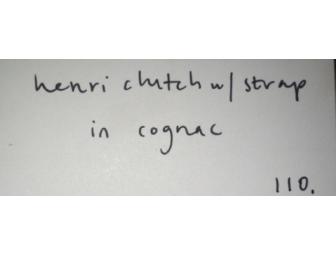 henri clutch w/ strap
in cognac
110.